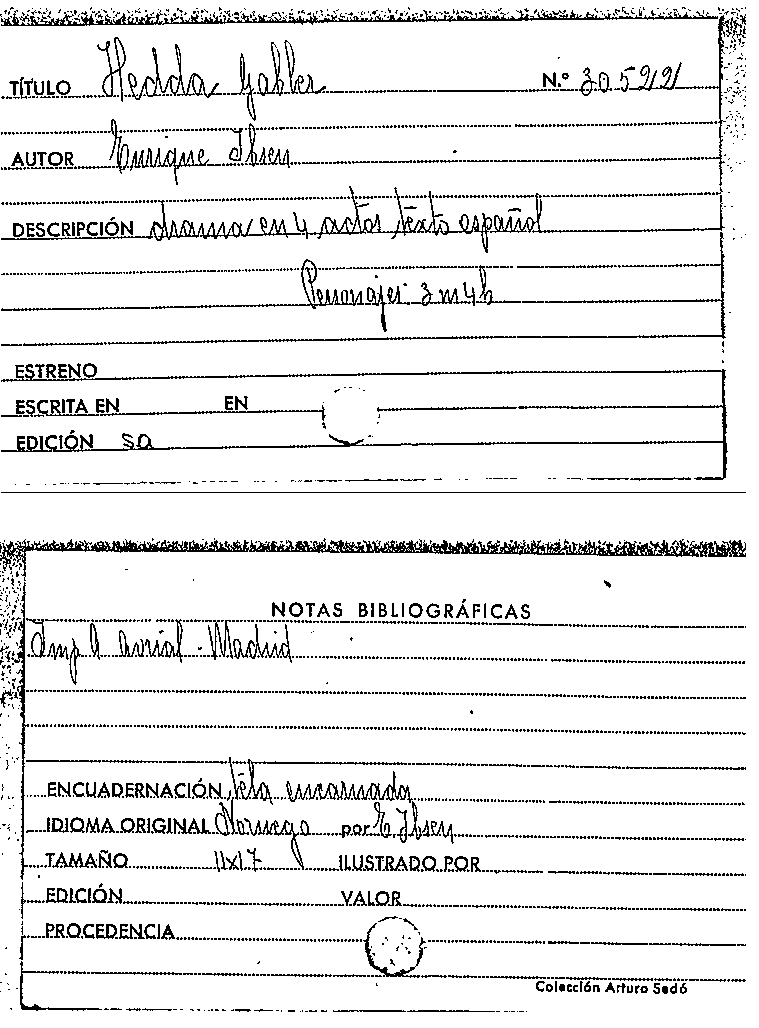 TÍTULO Hedda Gabler N.º 305991
AUTOR Enrique Ibsen
DESCRIPCIÓN drama en 4 actos texto español
Personajes 3 m 4 h
ESTRENO
ESCRITA EN EN
EDICIÓN sa
NOTAS BIBLIOGRÁFICAS
Imp A Avrial - Madrid
ENCUADERNACIÓN tela encarnada
IDIOMA ORIGINAL Noruego por E. Ibsen
TAMAÑO 11x17 ILUSTRADO POR
EDICIÓN VALOR
PROCEDENCIA
Colección Arturo Sedó